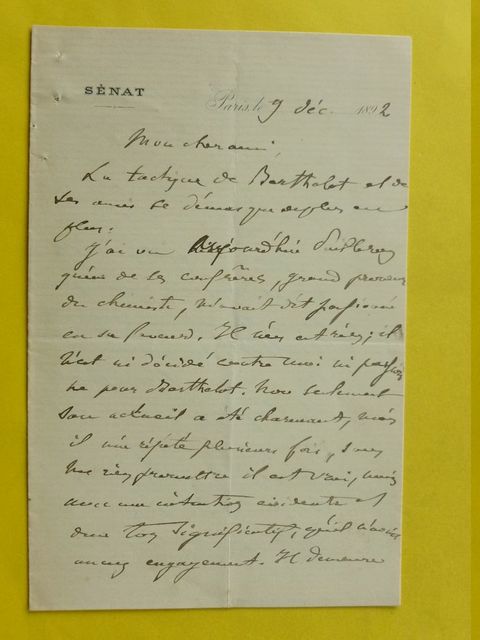 SÉNAT
Paris, le 9 déc. 1892
Mon cher ami,
La tactique de Berthelot et de
ses amis se démasque de plus en
plus.
J'ai vu aujourd'hui
de ses confrères, grand
du chimiste, m'avait dit passionné
en sa faveur. Il n'en est rien ; il
n'est ni décidé contre moi ni passion
né pour Berthelot. Non seulement
son accueil a été charmant, mais
il m'a répété plusieurs fois, sans
me rien promettre il est vrai, mais
avec une intention évidente et
d'un ton significatif, qu'il n'avait
aucun engagement. Il demeure